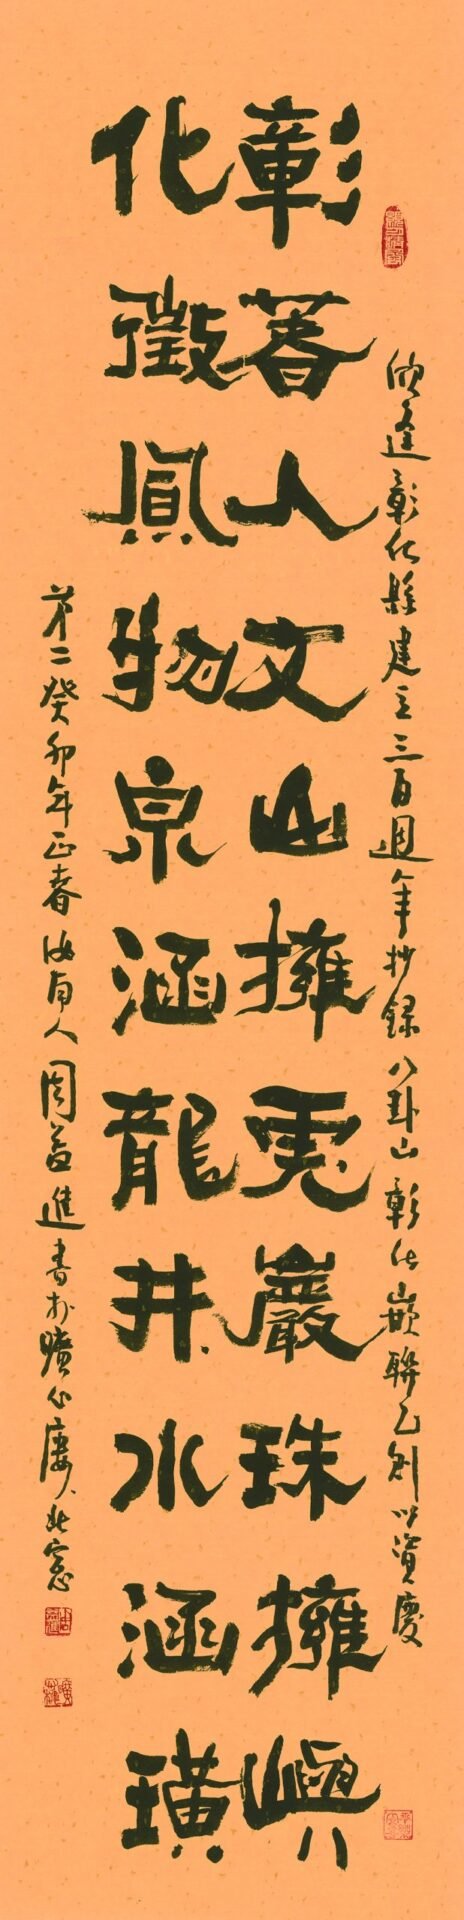 欣逢彰化縣建立三百週年抄錄八卦山彰化嵌聯乙則以資慶
彰著人文山擁虎巖珠擁嶼
化徵鳳物泉涵龍井水涵璜
第二癸卯年正春汝南人周益進書於曠心廔北窓